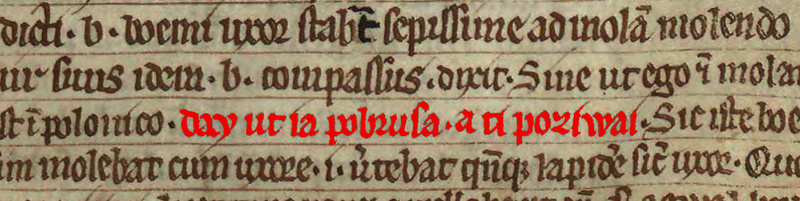 dicti · b · boemi uxor stabat sepissime ad molã molendo
uir suus idem · b · compassus · dixit · Sine ut ego ĩ molam
st ĩ polonico · day ut ia pobrusa · a ti poziwai · Sic iste boe
im molebat cum uxore · i · ũtebat qñq lapidẽ sic̃ uxor · Quo